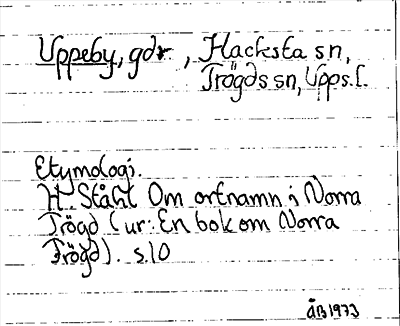 Uppeby, gdr, Hacksta sn,
Trögds sn, Upps. l.
Etymologi.
H. Ståhl Om ortnamn i Norra
Trögd (ur: En bok om Norra
Trögd). s. 10
ÅB 1973